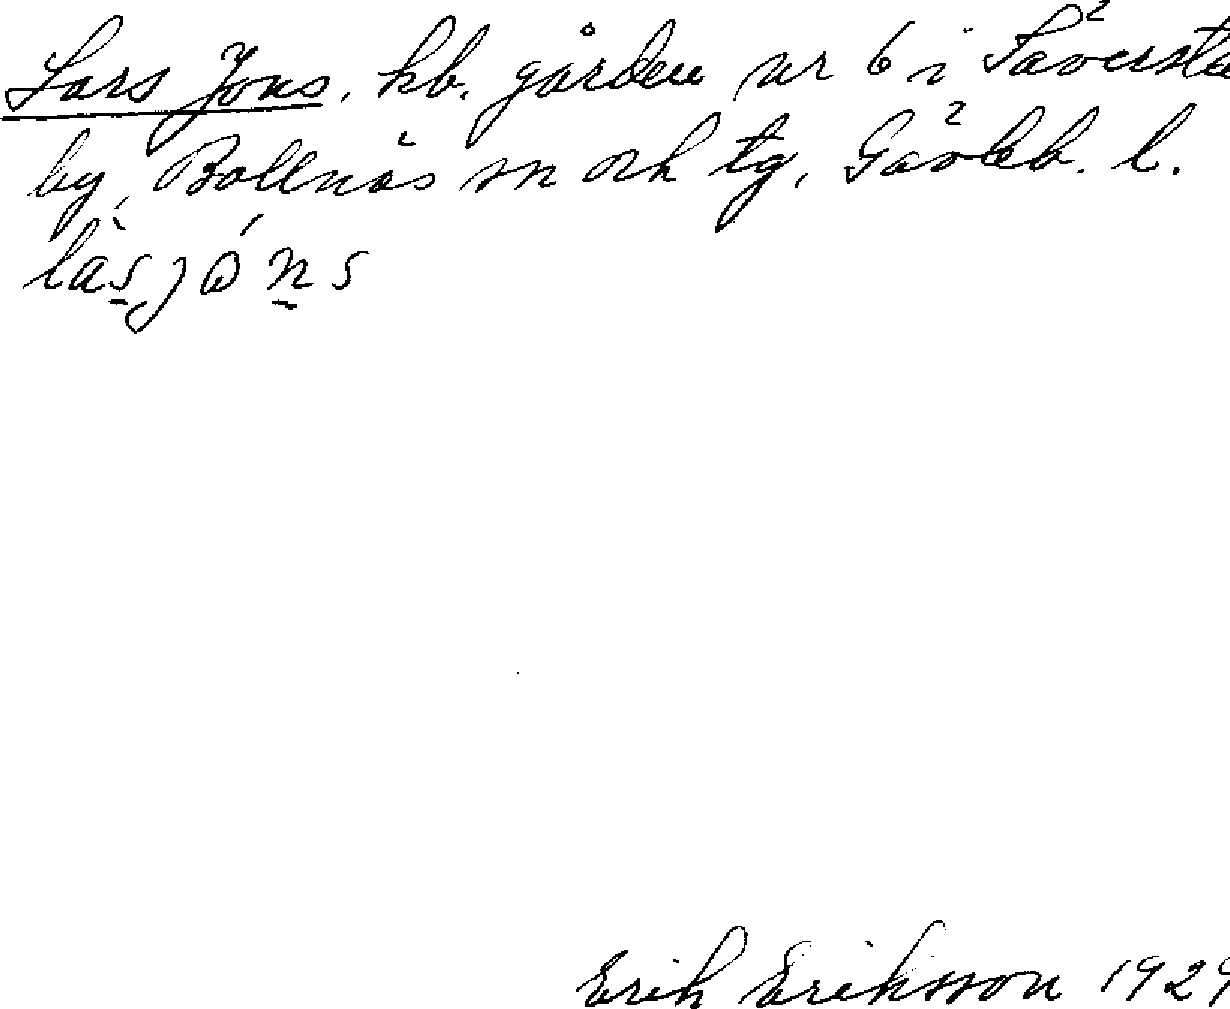 Lars Jons, hb. gården nr 6 i Säversta
by, Bollnäs sn och tg, Gävleb. l.
làs̠jó n̠s
Erik Eriksson 1929